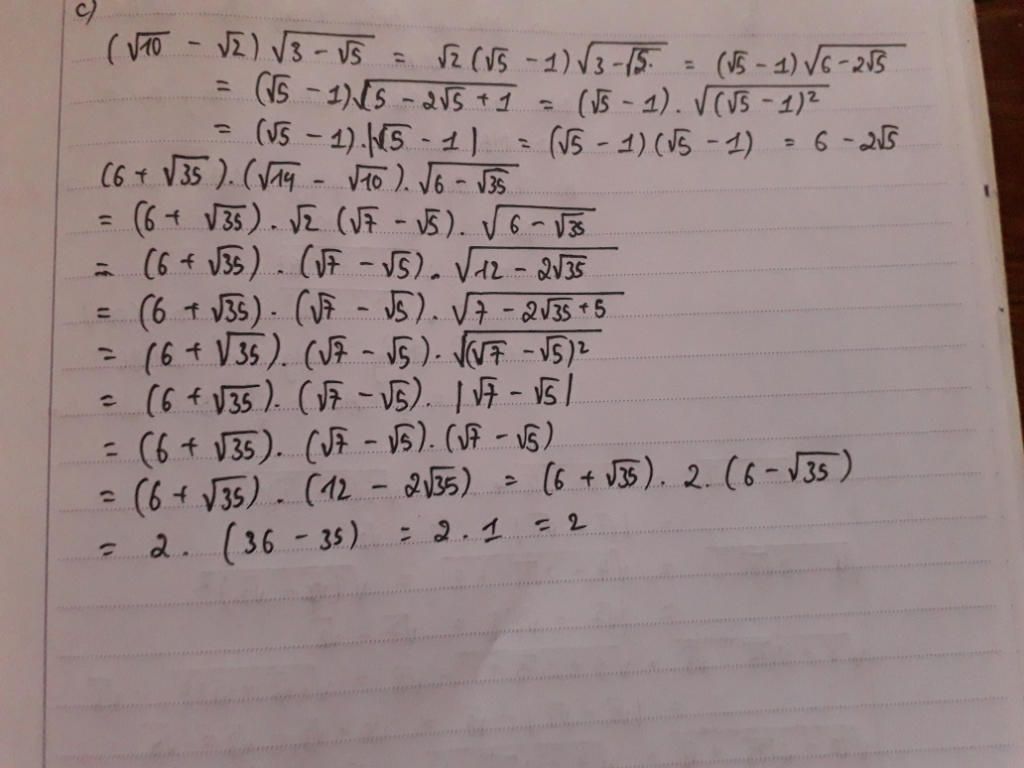 c)
(√10 - √2) √(3 - √5) = √2 (√5 - 1) √(3 - √5) = (√5 - 1) √(6 - 2√5)
= (√5 - 1) √(5 - 2√5 + 1) = (√5 - 1) . √((√5 - 1)²)
= (√5 - 1) . |√5 - 1| = (√5 - 1) (√5 - 1) = 6 - 2√5
(6 + √35) . (√14 - √10) . √(6 - √35)
= (6 + √35) . √2 (√7 - √5) . √(6 - √35)
= (6 + √35) . (√7 - √5) . √(12 - 2√35)
= (6 + √35) . (√7 - √5) . √(7 - 2√35 + 5)
= (6 + √35) . (√7 - √5) . √((√7 - √5)²)
= (6 + √35) . (√7 - √5) . |√7 - √5|
= (6 + √35) . (√7 - √5) . (√7 - √5)
= (6 + √35) . (12 - 2√35) = (6 + √35) . 2 . (6 - √35)
= 2 . (36 - 35) = 2 . 1 = 2